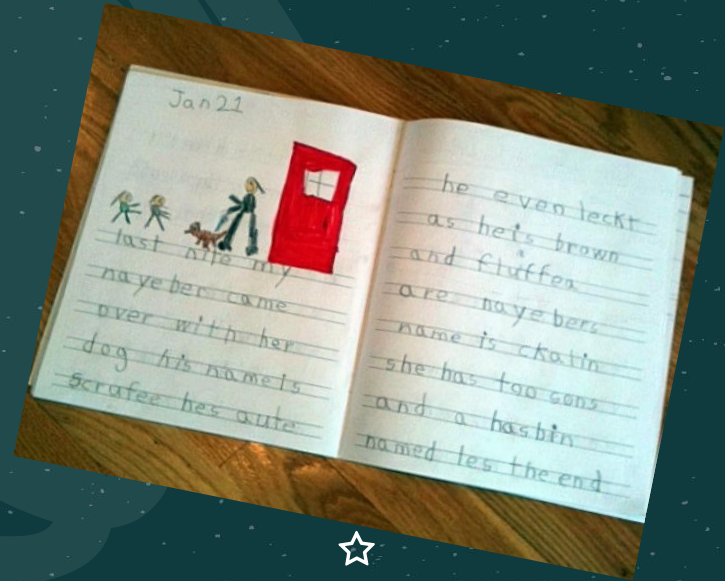 Jan 21
last nite my
nayeber came
over with her
dog his name is
scrufee hes qute
he even leckt
as he is brown
and fluffea
are nayebers
name is ckatin
she has too sons
and a hasbin
named les the end